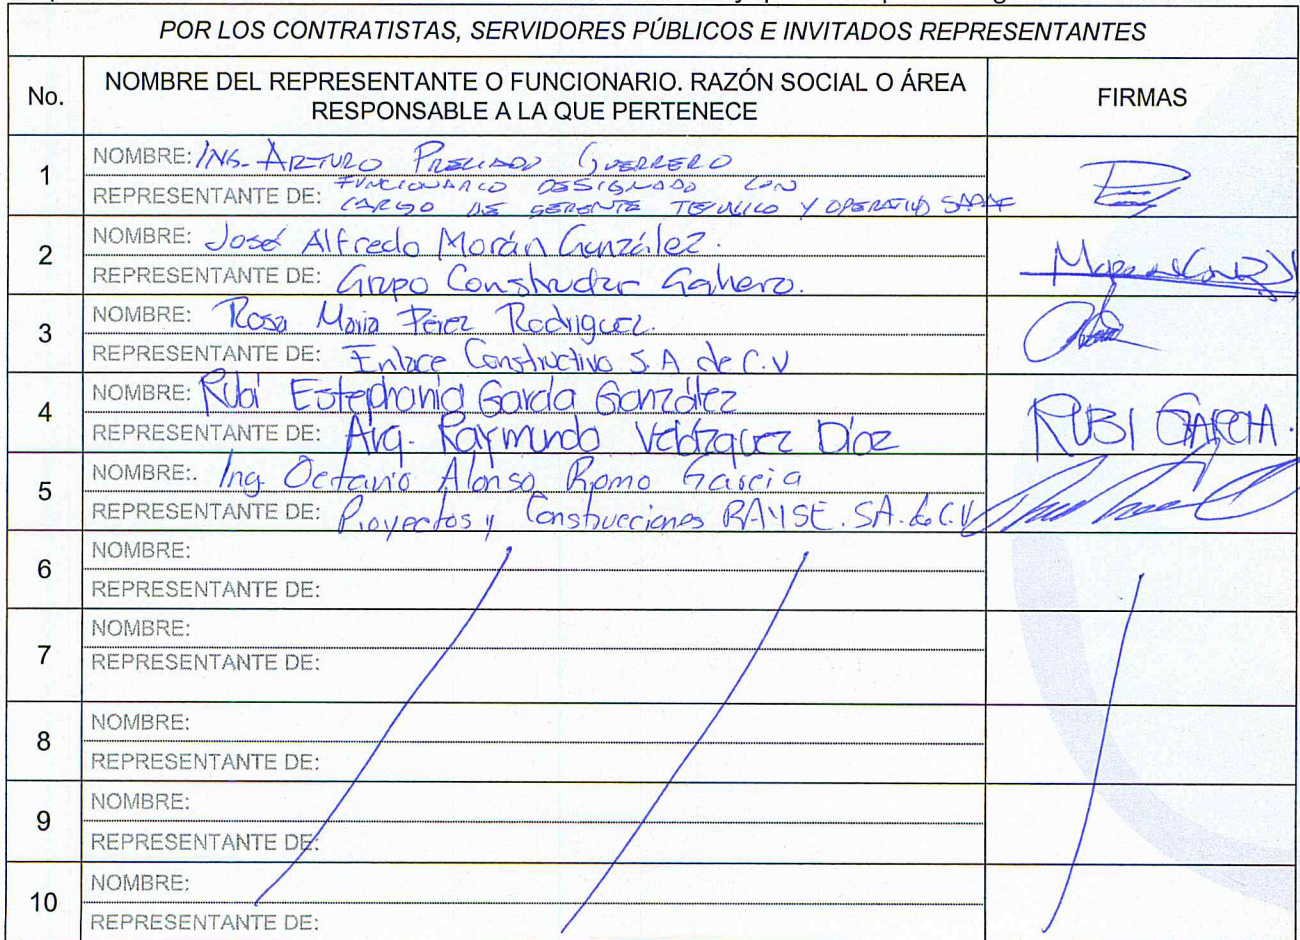 POR LOS CONTRATISTAS, SERVIDORES PÚBLICOS E INVITADOS REPRESENTANTES
No.
NOMBRE DEL REPRESENTANTE O FUNCIONARIO. RAZÓN SOCIAL O ÁREA
RESPONSABLE A LA QUE PERTENECE
FIRMAS
1
NOMBRE: ING. ARTURO PRECIADO GUERRERO
REPRESENTANTE DE: FUNCIONARIO DESIGNADO CON
CARGO DE GERENTE TECNICO Y OPERATIVO
2
NOMBRE: José Alfredo Morán González.
REPRESENTANTE DE: Grupo Constructor Gahero.
3
NOMBRE: Rosa Maria Pérez Rodriguez.
REPRESENTANTE DE: Enlace Constructivo S. A de C.V
4
NOMBRE: Rubí Estephania García González
REPRESENTANTE DE: Arq. Raymundo Velázquez Díaz
RUBI GARCIA.
5
NOMBRE:. Ing Octavio Alonso Romo Garcia
REPRESENTANTE DE: Proyectos y Construcciones RAYSE. SA. de C.V
6
NOMBRE:
REPRESENTANTE DE:
7
NOMBRE:
REPRESENTANTE DE:
8
NOMBRE:
REPRESENTANTE DE:
9
NOMBRE:
REPRESENTANTE DE:
10
NOMBRE:
REPRESENTANTE DE: